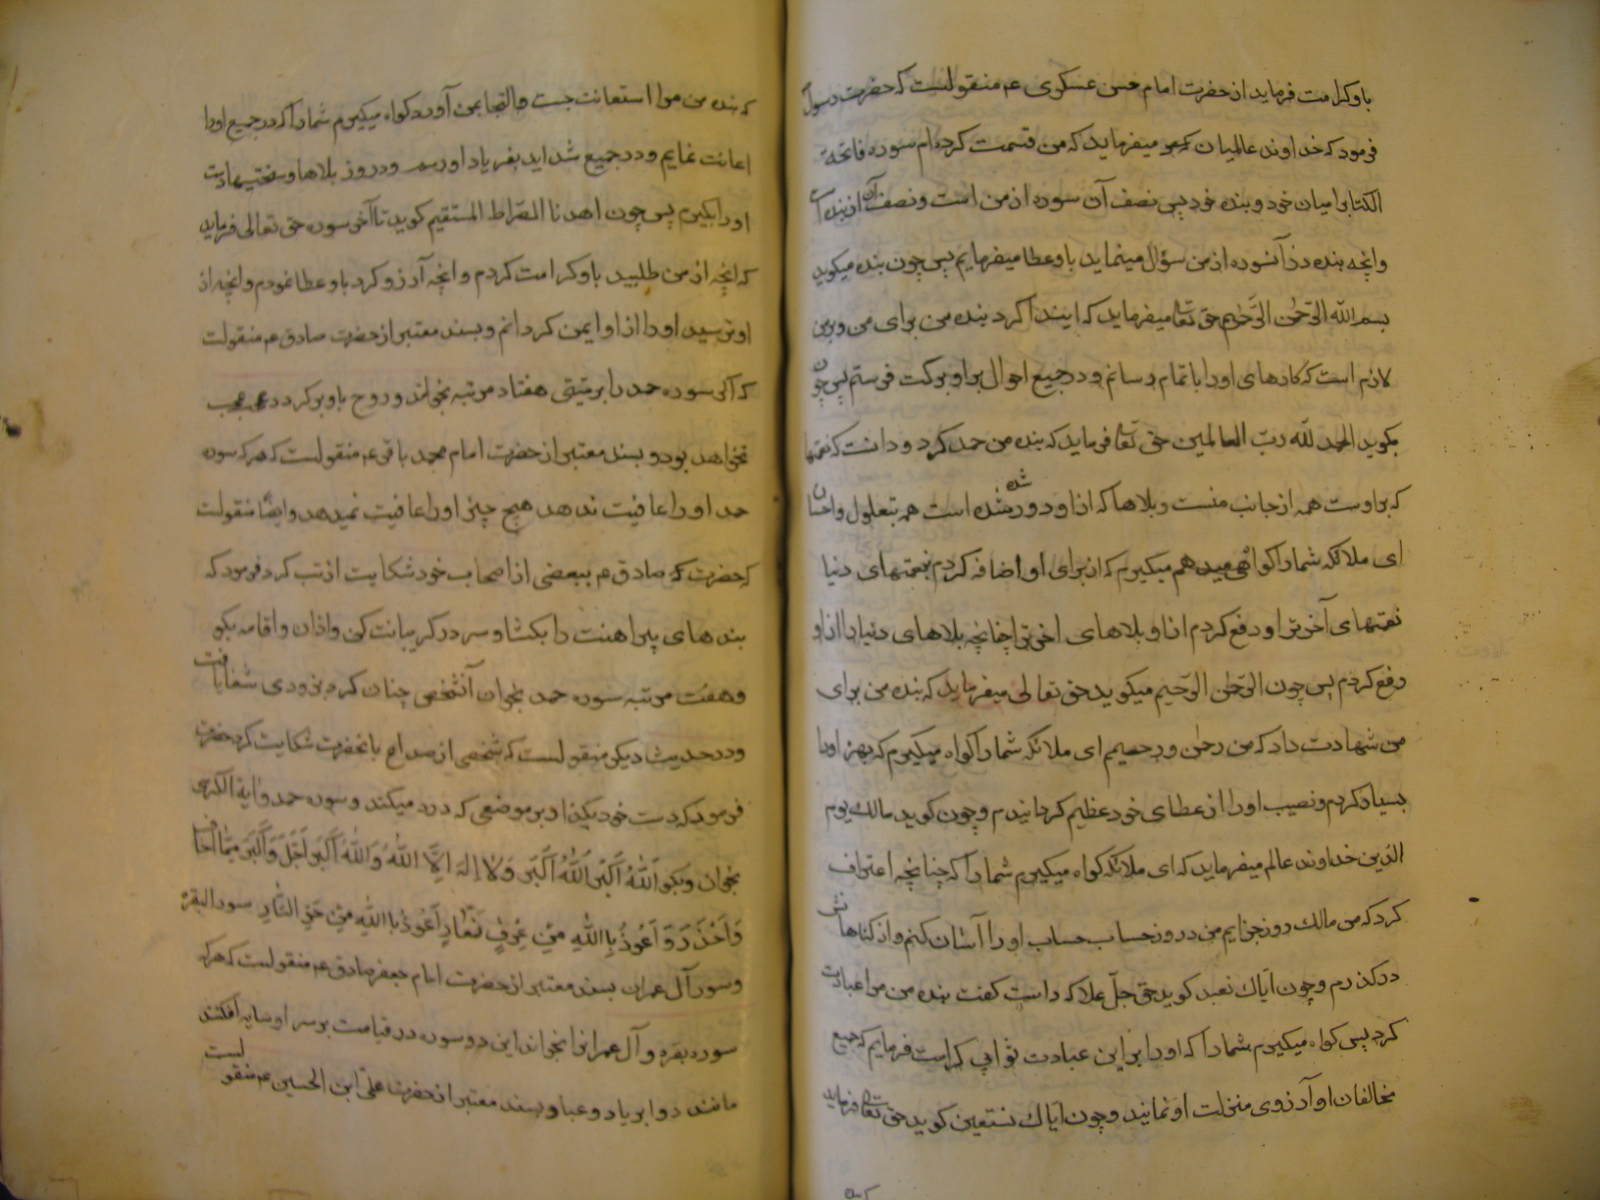 باو کرامت فرماید از حضرت امام حسن عسکری عم منقولست که حضرت رسول
فرمود که خداوند عالمیان میفرماید که من قسمت کرده‌ام سوره فاتحة
الکتابرا میان خود و بنه خود پس نصف آن سوره از من است و نصف آن از بنده
وانچه بنده در آنسوره از من سؤال مینماید باو عطا میفرمایم پس چون بنده میکوید
بسم الله الرحمن الرحیم حق تعالی میفرماید که ابتدا کرد بنده من برای من و بر من
لازم است که کارهای اورا باتمام رسانم و در جمیع احوال بر او برکت فرستم پس چون
بکوید الحمد لله رب العالمین حق تعالی فرماید که بنده من حمد کرد و دانست که نعمتها
که براوست همه از جانب منست و بلاها که از او دور شده است همه بتطول و احسان
ای ملائکه شمارا کواه میکیرم که از برای او اضافه کردم بنعمتهای دنیا
نعمتهای آخرترا و دفع کردم از او بلاهای اخرترا چنانچه بلاهای دنیارا از او
دفع کردم پس چون الرحمن الرحیم میکوید حق تعالی میفرماید که بنده من برای
من شهادت داد که من رحمن و رحیمم ای ملائکه شمارا کواه میکیرم که بهره اورا
بسیار کردم و نصیب اورا از عطای خود عظیم کردانیدم و چون کوید مالک یوم
الدین خداوند عالم میفرماید که ای ملائکه کواه میکیرم شمارا که چنانچه اعتراف
کرد که من مالک روز جزایم من در روز حساب حساب اورا آسان کنم و از کناهانش
درکذرم و چون ایاک نعبد کوید حق جل علا که راست کفت بنده من مرا عبادت
کرد پس کواه میکیرم شمارا که اورا بر این عبادت ثوابی کرامت فرمایم که جمیع
مخالفان او آرزوی منزلت او نمایند و چون ایاک نستعین کوید حق تعالی فرماید
که بنده من مرا استعانت جست و التجا بمن آورد کواه میکیرم شمارا که در جمیع اورا
اعانت نمایم و در جمیع شداید بفریاد او رسم و در روز بلاها و سختیها دست
اورا بکیرم پس چون اهدنا الصراط المستقیم کوید تا آخر سوره حق تعالی فرماید
که انچه از من طلبید باو کرامت کردم و انچه آرزو کرد باو عطا نمودم و انچه از
او ترسید اورا از او ایمن کردانم و بسند معتبر از حضرت صادق عم منقولست
که اکر سوره حمد را بر میتی هفتاد مرتبه بخواند و روح باو برکردد عجب
نخواهد بود و بسند معتبر از حضرت امام محمد باقر عم منقولست که هرکه سوره
حمد اورا عافیت ندهد هیچ چیز اورا عافیت نمیدهد و ایضا منقولست
که حضرت صادق عم ببعضی از اصحاب خود شکایت از تب کرد فرمود که
بندهای پیراهنت را بکشا و سر در کریبانت کن و اذان و اقامه بکو
و هفت مرتبه سوره حمد بخوان آنشخص چنان کرد بزودی شفا یافت
و در حدیث دیکر منقولست که شخصی از صداع بانحضرت شکایت کرد حضرت
فرمود که دست خود بکذار بر موضعی که درد میکند و سوره حمد و ایة الکرسی
بخوان و بکو اَللهُ اَکْبَر اَللهُ اَکْبَر وَلا اِلهَ اِلاّ اللهُ وَاللهُ اَکْبَر اَجَلّ وَاَکْبَر مِمّا اَخاف
وَاَحْذَر وَ اَعُوذُ بِاللهِ مِنْ عِرْقٍ نَعّارٍ اَعُوذُ بِاللهِ مِنْ حَرّ النّارِ سوره البقره
وسوره آل عمران بسند معتبر از حضرت امام جعفر صادق عم منقولست که هرکه
سوره بقره و آل عمرانرا بخواند این دو سوره در قیامت بر سر او سایه افکنند
مانند دو ابر یا دو عبا و بسند معتبر از حضرت علی ابن الحسین عم منقولست